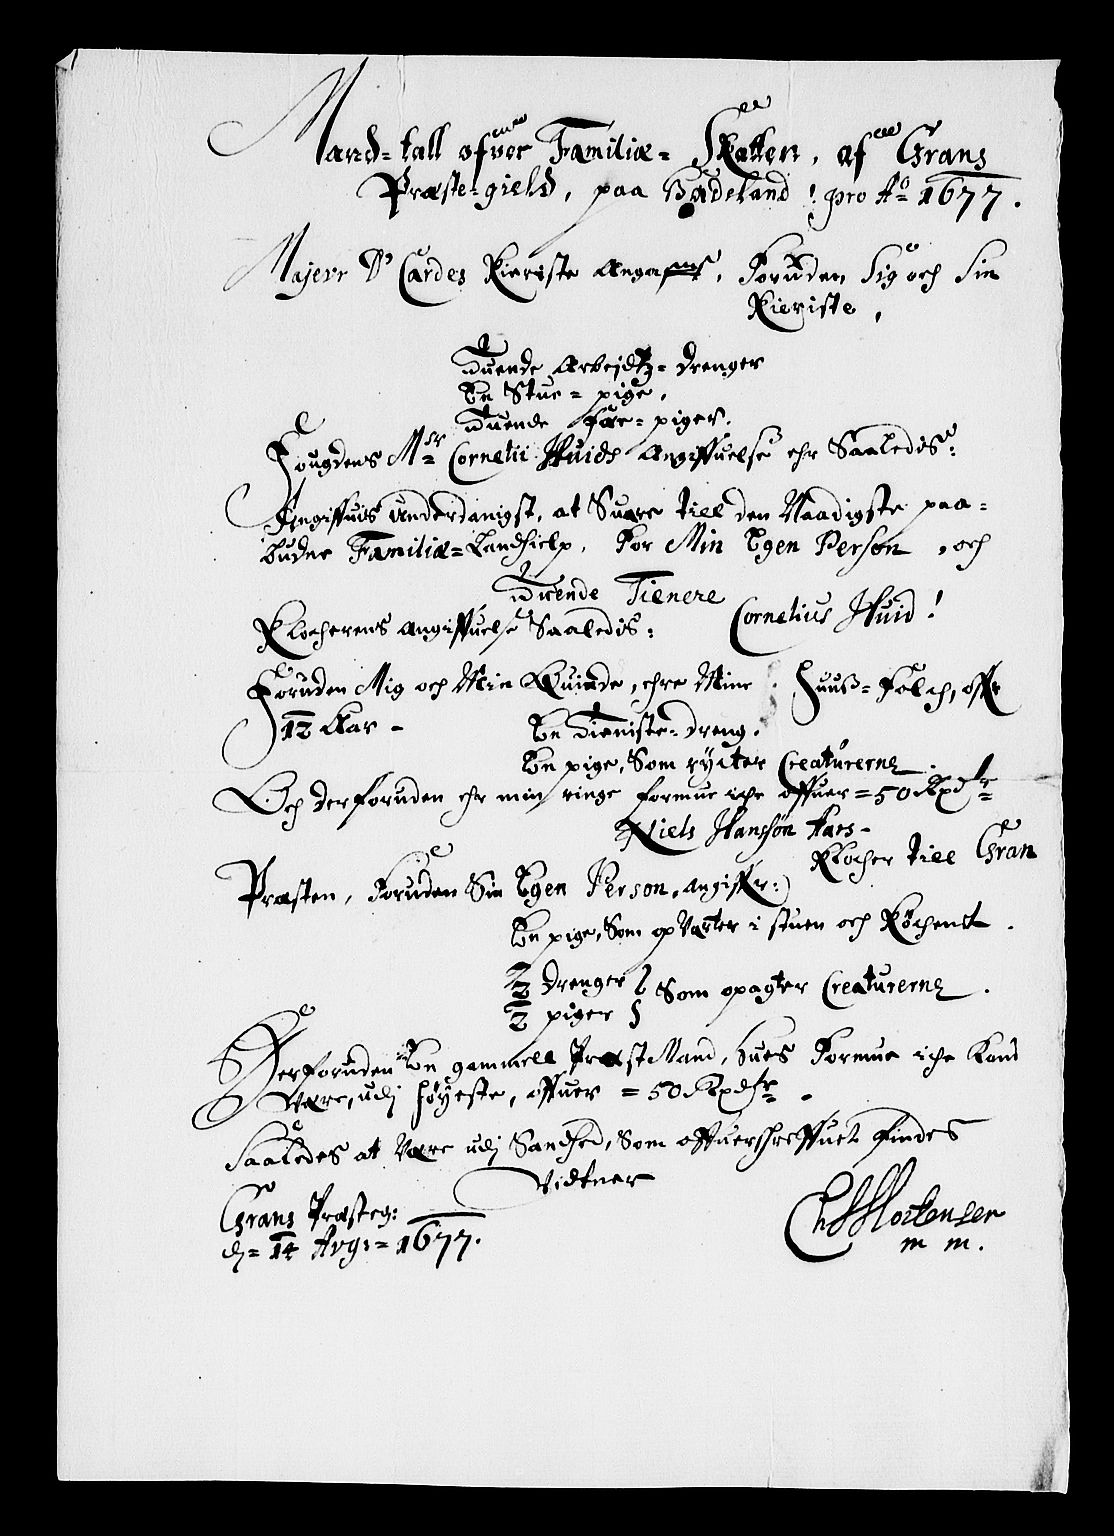 Mand-tall ofver Familiæ- Skatten, af Grans
Præste-gield, paa Hadeland! pro Ao 1677.
Majeur D' Cardes Kieriste Angafs, Foruden Sig och Sin
Kieriste,
Tuende Arbejdtz-drenger
En Stue-pige,
Tuende Fæe-piger.
Fougdens Msr Cornelii Huids Angiffuelse ehr Saaledis:
Angiffuis Underdanigst, at Suare till den Naadigste paa-
budne Familiæ-Landhielp, For Min Egen Person, och
Tuende Tienere
Cornelius Huid!
Klocherens Angiffuelse Saaledis:
Foruden Mig och Min Quinde, ehre Mine Huuß-Folch, offr
12 Aar -
En Tieniste-dreng.
En pige, Som rychter Creaturerne.
Och derforuden ehr min ringe formue iche offuer = 50 Rixdlr
Niels Hanssøn Aars-
Klocher till Gran
Præsten, Foruden Sin Egen Person, angiffr:
En pige, Som op Varter i stuen och Køchenet.
2 Drenger
2 piger
Som opagter Creaturerne.
Derforuden En gammell Præst Mand, hues Formue iche Kand
Være, udj høyeste, offuer = 50 Rixdlr.
Saaledes at Være udj Sandhed, Som offuerskreffuet findes
Vidtner
Grans Præsteg:
dj = 14 Avgs = 1677.
Ch Mortensen
m m.